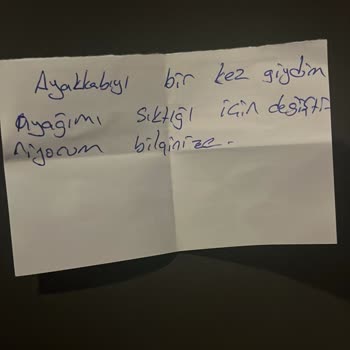 Ayakkabıyı bir kez giydim
Ayağımı sıktığı için değişti-
riyorum bilginize.